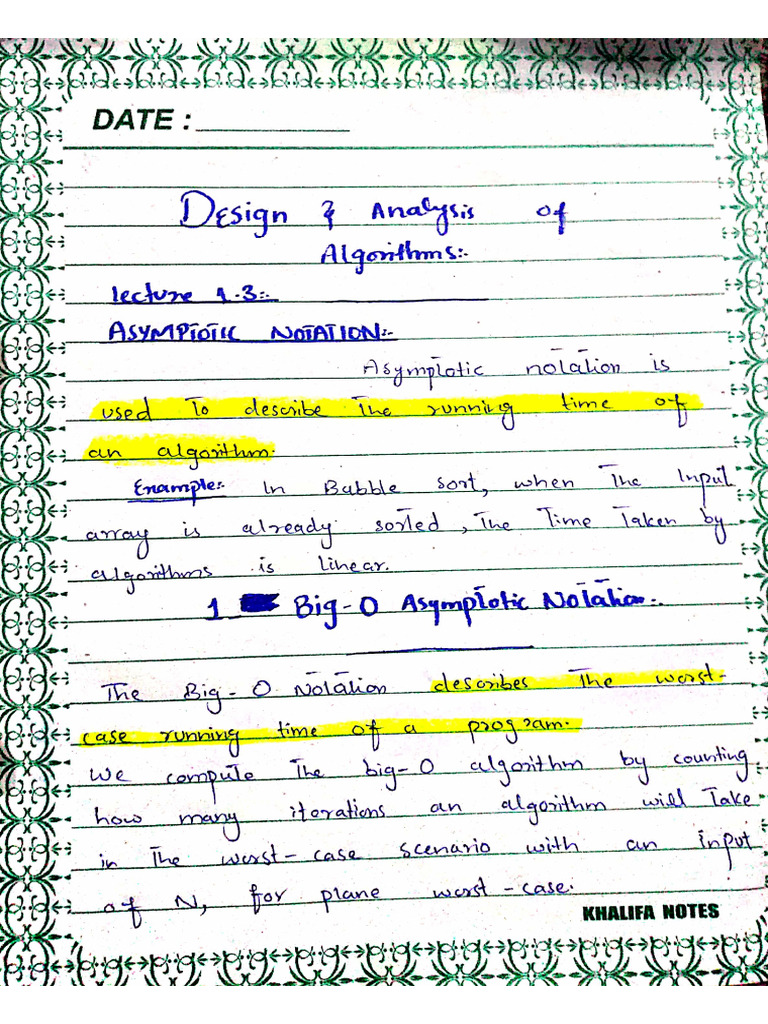 DATE :
Design & Analysis of
Algorithms:-
lecture 1.3:-
ASYMPTOTIC NOTATION:-
Asymptotic notation is
used To describe The running time of
an algorithm.
Example:- In Bubble sort, when The Input
array is already sorted, The Time Taken by
algorithms is linear.
1 Big-O Asymptotic Notation:-
The Big-O Notation describes The worst-
case running time of a program.
we compute The big-O algorithm by counting
how many iterations an algorithm will Take
in The worst-case scenario with an input
of N, for plane worst-case.
KHALIFA NOTES